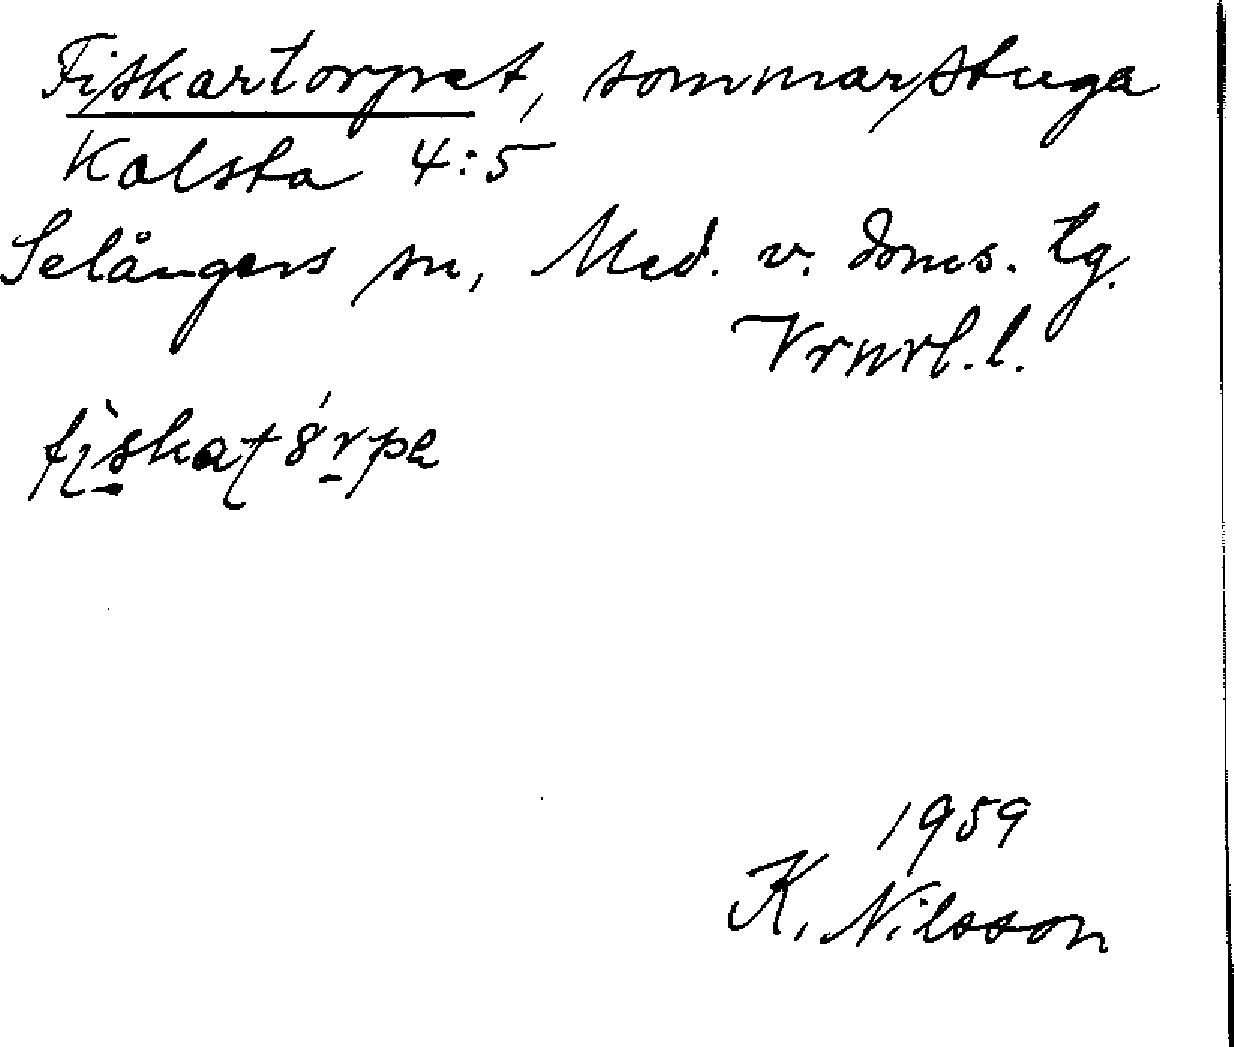 Fiskartorpet, sommarstuga
Kalsta 4:5
Selångers sn, Med. v. doms. tg.
Vrnrl. l.
fìskatórpa
1959
K. Nilsson